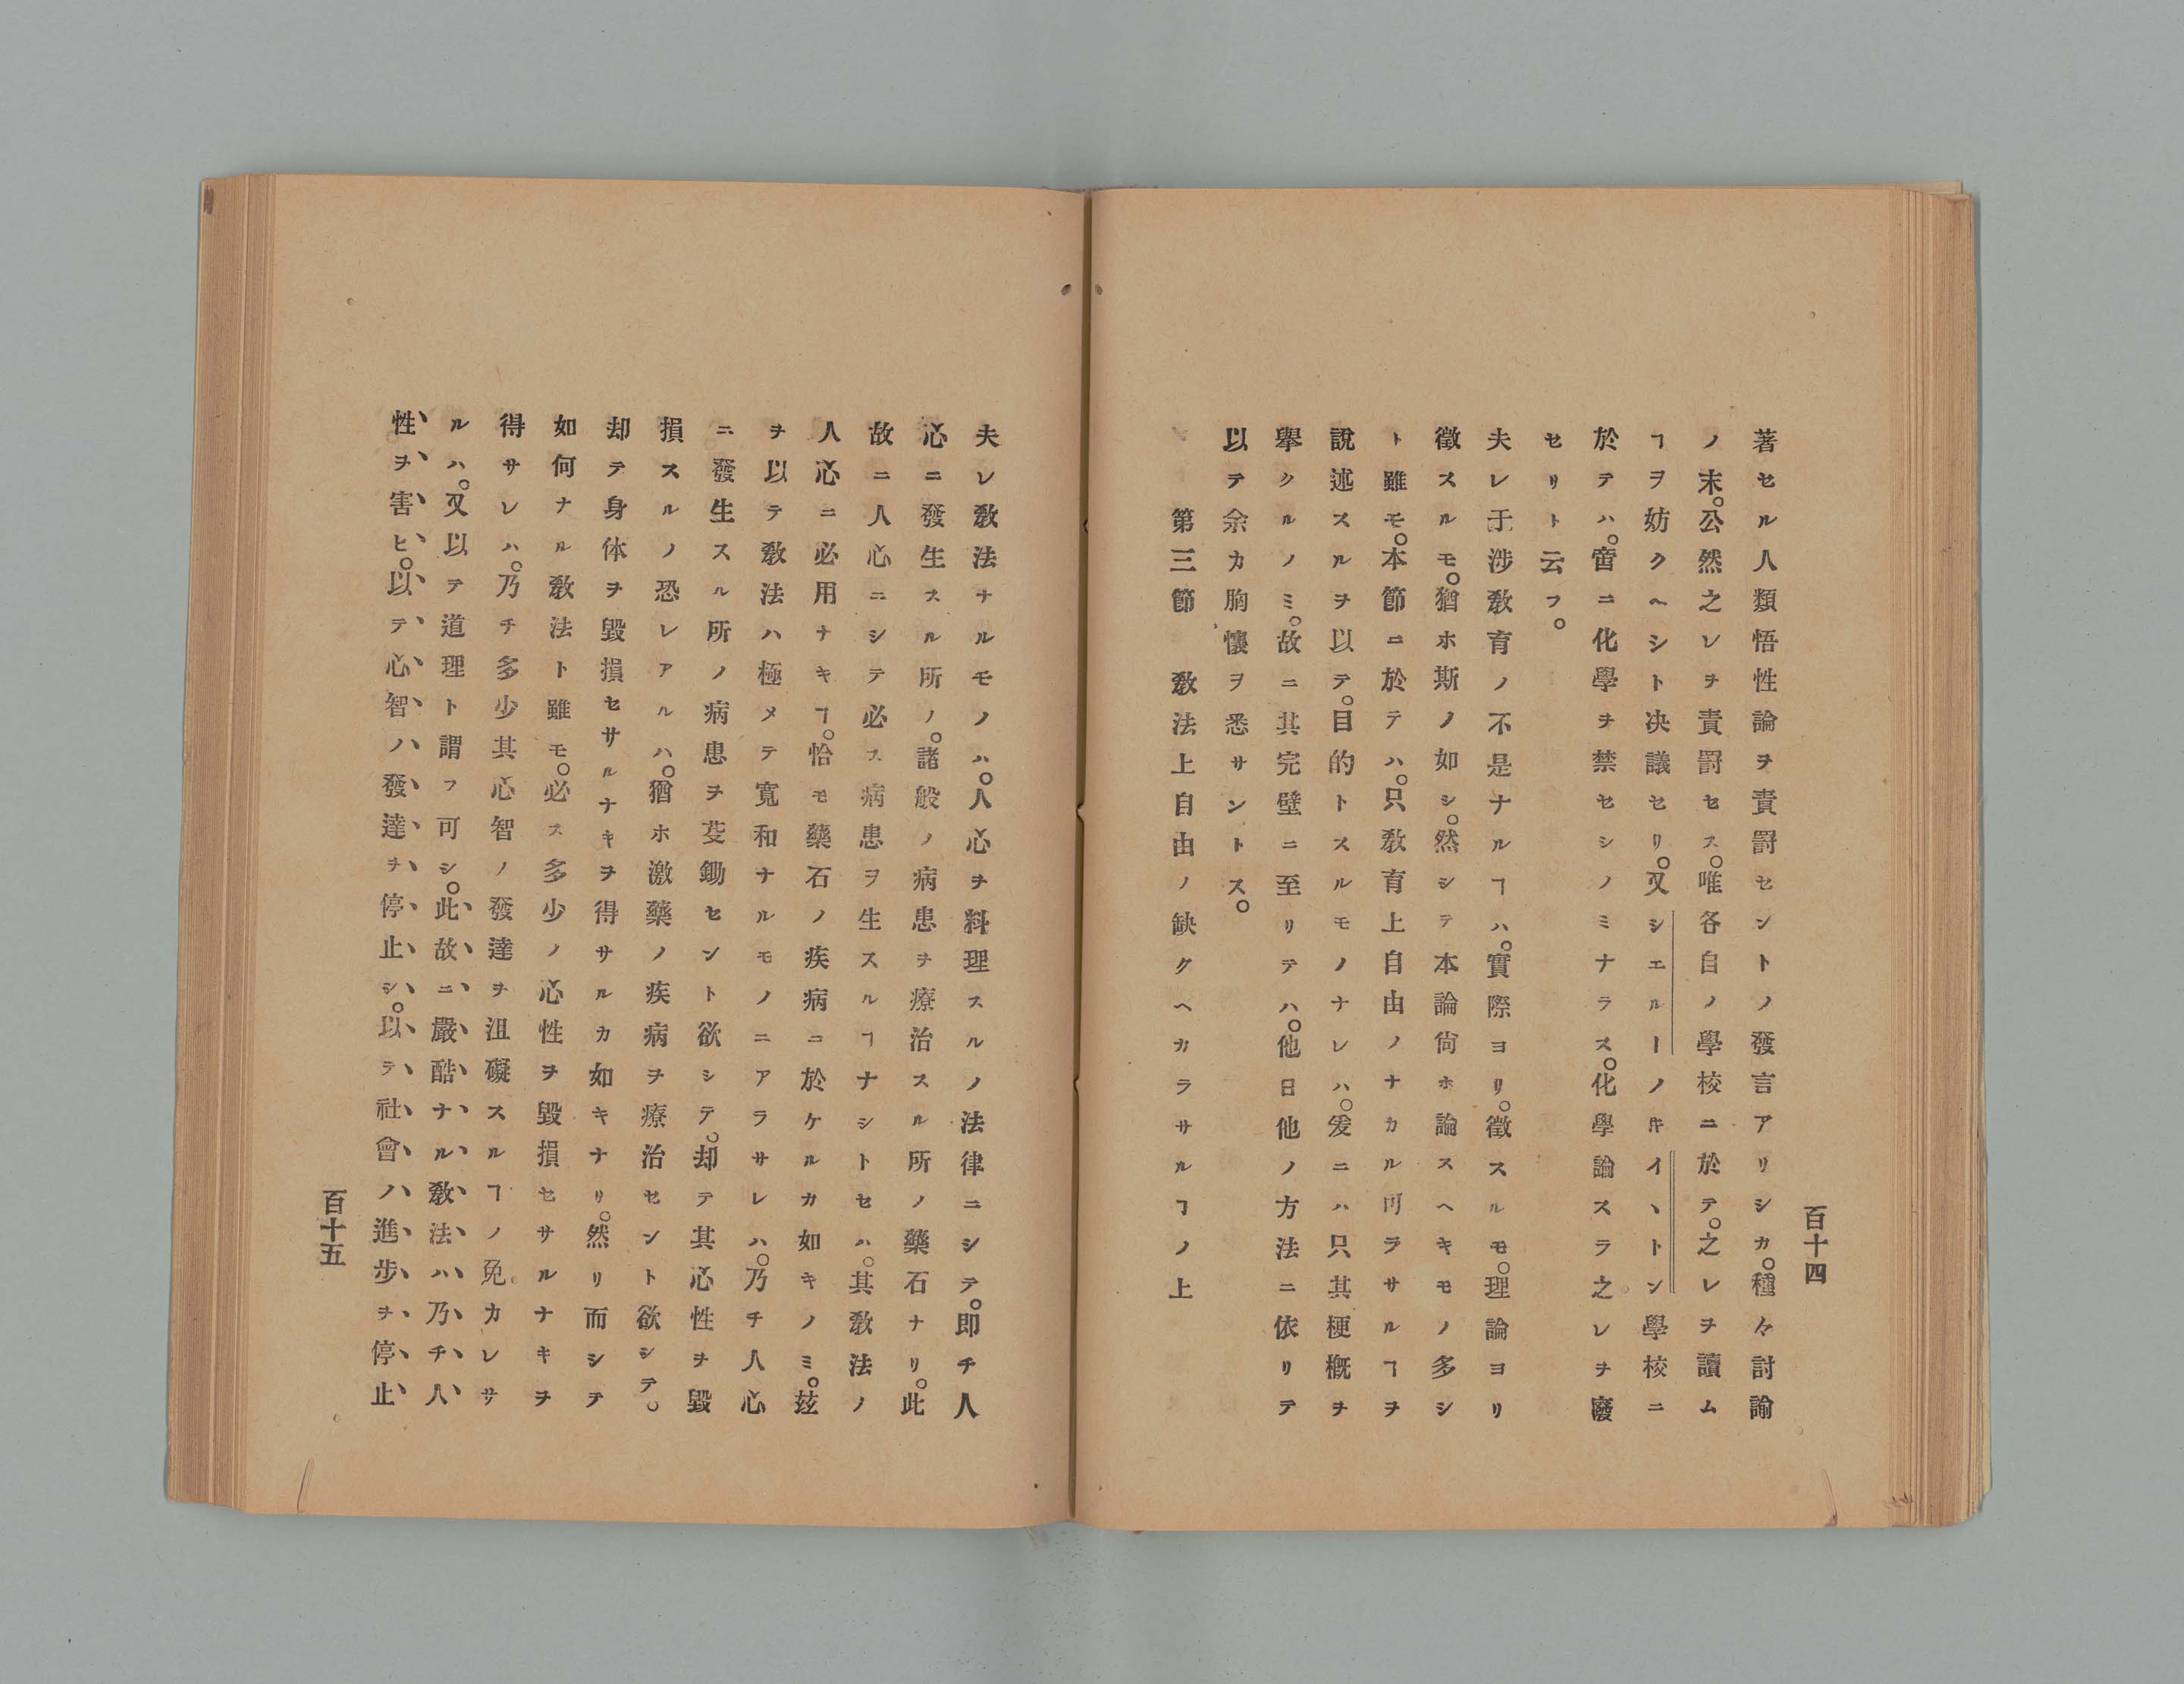 百十四
著セル人類悟性論ヲ責罰セントノ發言アリシカ。種々討論
ノ末。公然之レヲ責罰セス。唯各自ノ學校ニ於テ。之レヲ讀ム
ヿヲ妨クヘシト决議セリ。又シエルーノキイヽトン學校ニ
於テハ。啻ニ化學ヲ禁セシノミナラス。化學論スラ之レヲ廢
セリト云フ。
夫レ干渉教育ノ不是ナルヿハ。實際ヨリ。徵スルモ。理論ヨリ
徵スルモ。猶ホ斯ノ如シ。然シテ本論尙ホ論スヘキモノ多シ
ト雖モ。本節ニ於テハ。只教育上自由ノナカル可ラサルヿヲ
說述スルヲ以テ。目的トスルモノナレハ。爰ニハ只其梗概ヲ
擧クルノミ。故ニ其完壁ニ至リテハ。他日他ノ方法ニ依リテ
以テ余カ胸懷ヲ悉サントス。
第三節 教法上自由ノ缺クヘカラサルヿノ上
夫レ教法ナルモノハ。人心ヲ料理スルノ法律ニシテ。即チ人
心ニ發生スル所ノ。諸般ノ病患ヲ療治スル所ノ藥石ナリ。此
故ニ人心ニシテ必ス病患ヲ生スルヿナシトセハ。其教法ノ
人心ニ必用ナキヿ。恰モ藥石ノ疾病ニ於ケルカ如キノミ。玆
ヲ以テ教法ハ極メテ寬和ナルモノニアラサレハ。乃チ人心
ニ發生スル所ノ病患ヲ芟鋤セント欲シテ。却テ其心性ヲ毀
損スルノ恐レアルハ。猶ホ激藥ノ疾病ヲ療治セント欲シテ。
却テ身体ヲ毀損セサルナキヲ得サルカ如キナリ。然リ而シテ
如何ナル教法ト雖モ。必ス多少ノ心性ヲ毀損セサルナキヲ
得サレハ。乃チ多少其心智ノ發達ヲ沮礙スルヿノ免カレサ
ルハ。又以テ道理ト謂フ可シ。此故ニ嚴酷ナル教法ハ乃チ人
性ヲ害ヒ。以テ心智ハ發達ヲ停止シ。以テ社會ハ進步ヲ停止
百十五